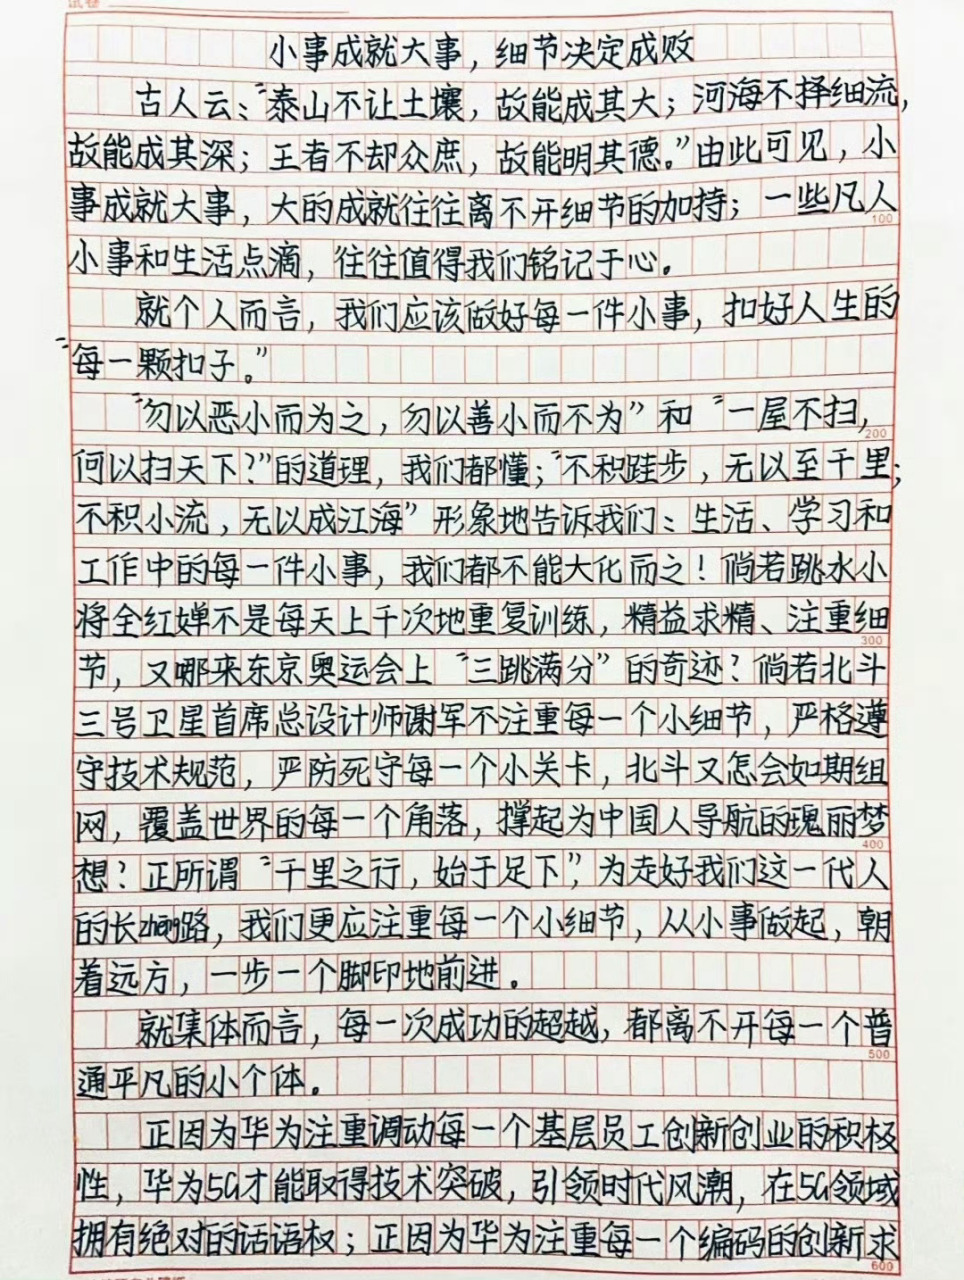 试卷
小事成就大事，细节决定成败
古人云：“泰山不让土壤，故能成其大；河海不择细流，
故能成其深；王者不却众庶，故能明其德。”由此可见，小
事成就大事，大的成就往往离不开细节的加持；一些凡人
100
小事和生活点滴，往往值得我们铭记于心。
就个人而言，我们应该做好每一件小事，扣好人生的
“每一颗扣子。”
“勿以恶小而为之，勿以善小而不为”和“一屋不扫，
200
何以扫天下？”的道理，我们都懂；“不积跬步，无以至千里；
不积小流，无以成江海”形象地告诉我们：生活、学习和
工作中的每一件小事，我们都不能大化而之！倘若跳水小
将全红婵不是每天上千次地重复训练，精益求精、注重细
300
节，又哪来东京奥运会上“三跳满分”的奇迹？倘若北斗
三号卫星首席总设计师谢军不注重每一个小细节，严格遵
守技术规范，严防死守每一个小关卡，北斗又怎会如期组
网，覆盖世界的每一个角落，撑起为中国人导航的瑰丽梦
400
想？正所谓“千里之行，始于足下”，为走好我们这一代人
的长zheng路，我们更应注重每一个小细节，从小事做起，朝
着远方，一步一个脚印地前进。
就集体而言，每一次成功的超越，都离不开每一个普
500
通平凡的小个体。
正因为华为注重调动每一个基层员工创新创业的积极
性，华为5G才能取得技术突破，引领时代风潮，在5G领域
拥有绝对的话语权；正因为华为注重每一个编码的创新求
600